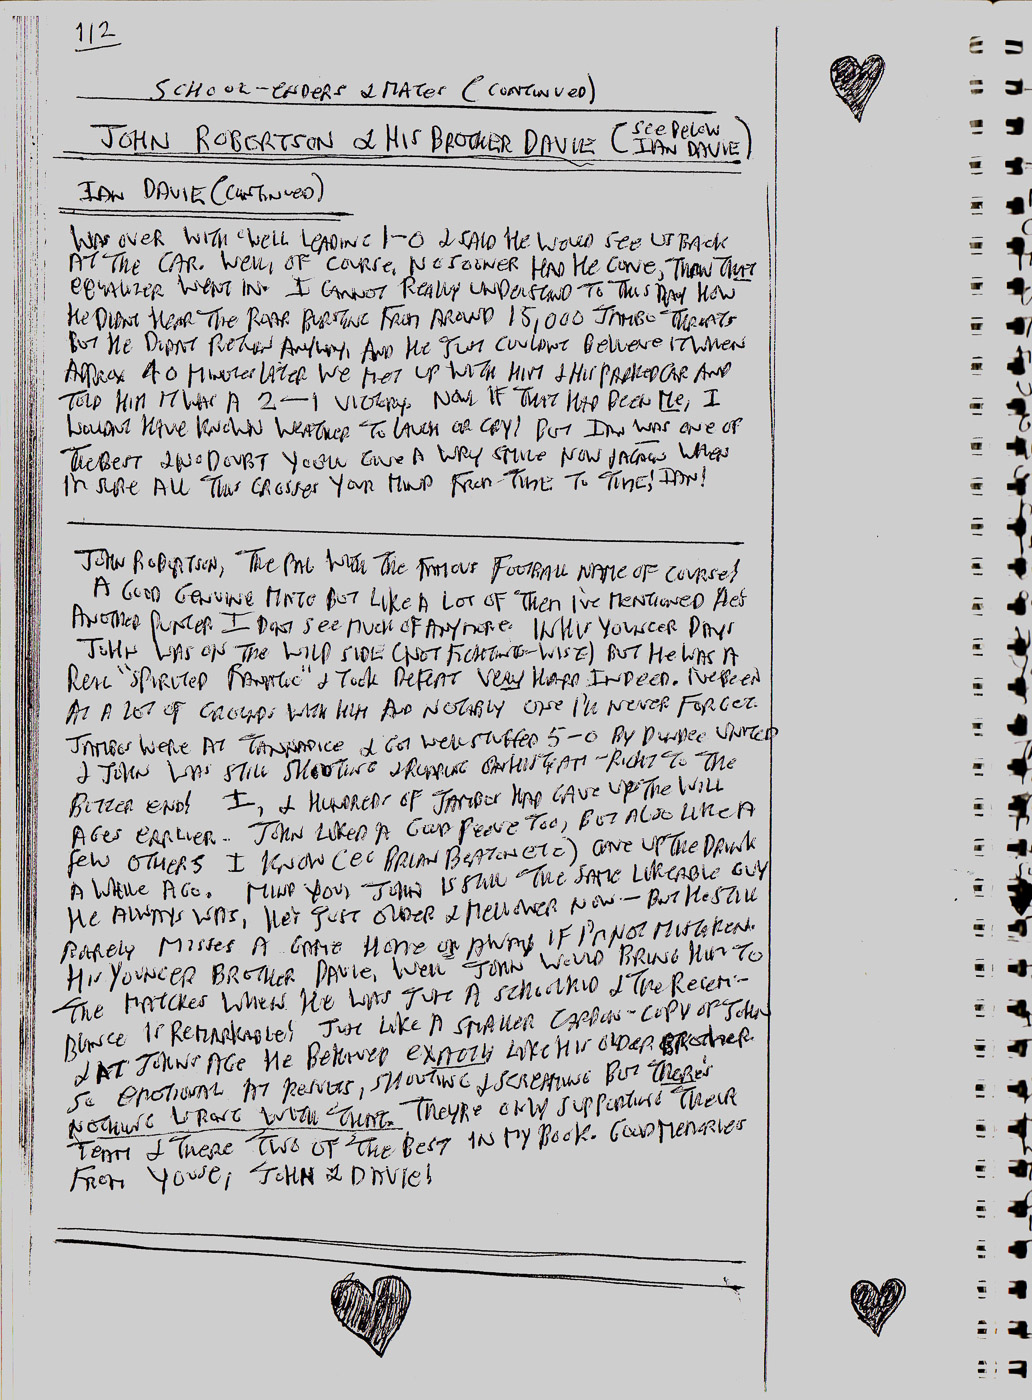 112
SCHOOL-ENDERS & MATES (CONTINUED)
JOHN ROBERTSON & HIS BROTHER DAVIE (SEE BELOW IAN DAVIE)
IAN DAVIE (CONTINUED)
WAS OVER WITH "WELL LEADING 1-0 & SAID HE WOULD SEE US BACK
AT THE CAR. WELL, OF COURSE, NO SOONER HAD HE GONE, THAN THAT
EQUALIZER WENT IN. I CANNOT REALLY UNDERSTAND TO THIS DAY HOW
HE DIDNT HEAR THE ROAR BURSTING FROM AROUND 15,000 JAMBO THROATS
BUT HE DIDNT RETURN ANYWAY, AND HE JUST COULDNT BELIEVE IT WHEN
APPROX 40 MINUTES LATER WE MET UP WITH HIM & HIS PARKED CAR AND
TOLD HIM IT WAS A 2-1 VICTORY. NOW IF THAT HAD BEEN ME, I
WOULDNT HAVE KNOWN WEATHER TO LAUGH OR CRY! BUT IAN WAS ONE OF
THE BEST & NO DOUBT YOU'LL GIVE A WRY SMILE NOW & AGAIN WHEN
I'M SURE ALL THIS CROSSES YOUR MIND FROM-TIME TO TIME! IAN!
JOHN ROBERTSON, THE PAL WITH THE FAMOUS FOOTBALL NAME OF COURSE!
A GOOD GENUINE MATE BUT LIKE A LOT OF THEM I'VE MENTIONED HE'S
ANOTHER PUNTER I DONT SEE MUCH OF ANYMORE. IN HIS YOUNGER DAYS
JOHN WAS ON THE WILD SIDE (NOT FIGHTING-WISE) BUT HE WAS A
REAL "SPIRITED FANATIC" & TOOK DEFEAT VERY HARD INDEED. I'VE BEEN
AT A LOT OF GROUNDS WITH HIM AND NOTABLY ONE I'LL NEVER FORGET.
JAMBOS WERE AT TANNADICE & GOT WELL STUFFED 5-0 BY DUNDEE UNITED
& JOHN WAS STILL SHOUTING & ROARING ON HIS TEAM-RIGHT TO THE
BITTER END! I, & HUNDREDS OF JAMBOS HAD GAVE UP THE WILL
AGES EARLIER.. JOHN LIKED A GOOD BEVVIE TOO, BUT ALSO LIKE A
FEW OTHERS I KNOW (EG BRIAN BEATON ETC) GAVE UP THE DRINK
A WHILE AGO. MIND YOU, JOHN IS STILL THE SAME LIKEABLE GUY
HE ALWAYS WAS, HE'S JUST OLDER & MELLOWER NOW - BUT HE STILL
RARELY MISSES A GAME HOME OR AWAY IF I'M NOT MISTAKEN.
HIS YOUNGER BROTHER DAVIE, WELL JOHN WOULD BRING HIM TO
THE MATCHES WHEN HE WAS JUST A SCHOOLKID & THE RESEM-
BLANCE IS REMARKABLE! JUST LIKE A SMALLER CARBON-COPY OF JOHN
& AT JOHNS AGE HE BEHAVED EXACTLY LIKE HIS OLDER BROTHER.
SO EMOTIONAL AT RESULTS, SHOUTING & SCREAMING BUT THERE'S
NOTHING WRONG WITH THAT. THEYRE ONLY SUPPORTING THEIR
TEAM & THERE TWO OF THE BEST IN MY BOOK. GOOD MEMORIES
FROM YOUSE, JOHN & DAVIE!